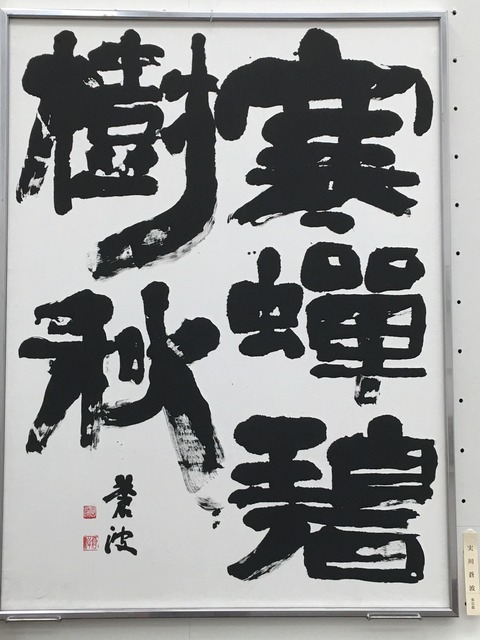 寒蟬碧
樹秋
蒼波
実川蒼波